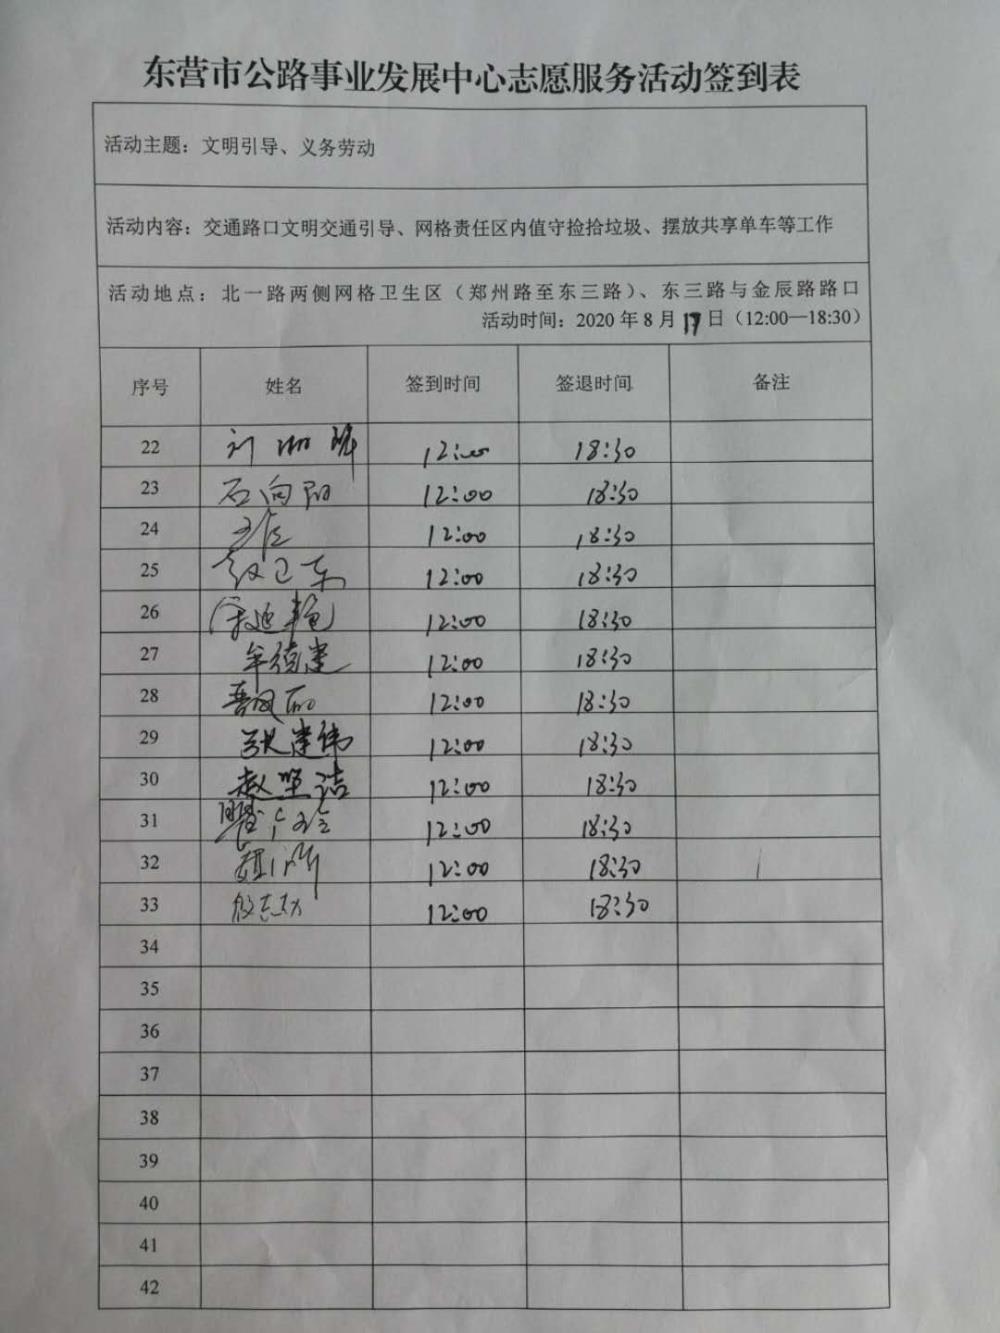 东营市公路事业发展中心志愿服务活动签到表
活动主题：文明引导、义务劳动
活动内容：交通路口文明交通引导、网格责任区内值守捡拾垃圾、摆放共享单车等工作
活动地点：北一路两侧网格卫生区（郑州路至东三路）、东三路与金辰路路口
活动时间：2020年8月17日（12:00—18:30）
序号 姓名 签到时间 签退时间 备注
22 刘 12:00 18:30
23 石向阳 12:00 18:30
24 12:00 18:30
25 赵卫东 12:00 18:30
26 宋延艳 12:00 18:30
27 牟德建 12:00 18:30
28 12:00 18:30
29 张建伟 12:00 18:30
30 赵坚洁 12:00 18:30
31 12:00 18:30
32 12:00 18:30
33 12:00 18:30
34
35
36
37
38
39
40
41
42